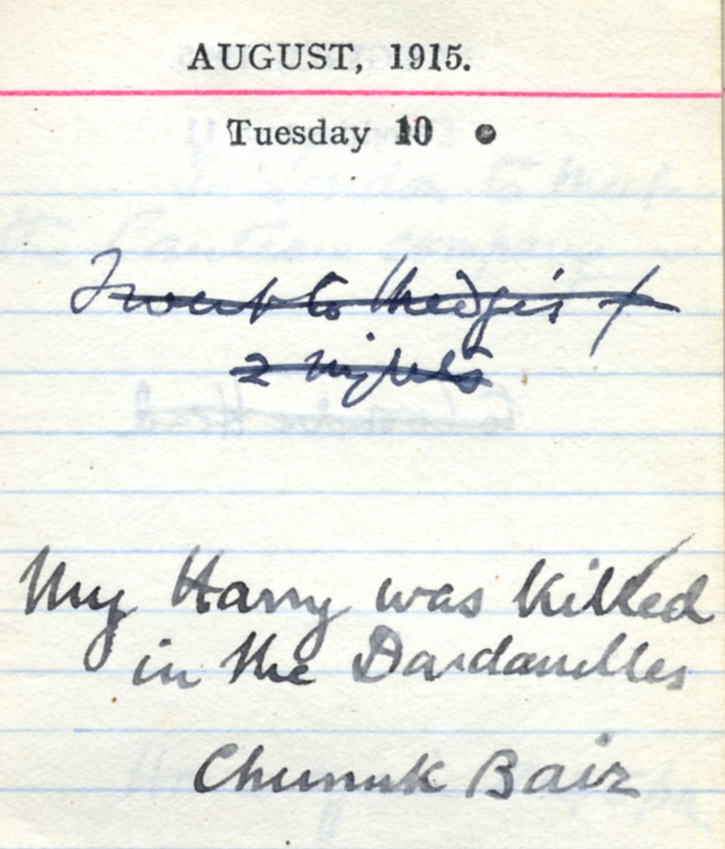 AUGUST, 1915.
Tuesday 10
I went to Madge's
2 nights
My Harry was killed
in the Dardanelles
Chunuk Bair